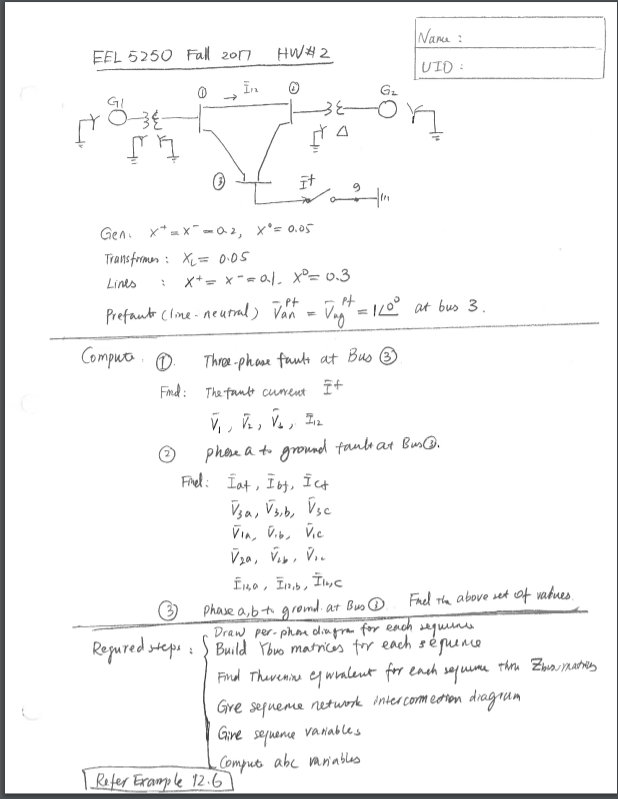 EEL 5250 Fall 2017 HW#2
Name :
UID :
G1
①
→ Ī12
②
G2
Δ
③
If
g
Gen: X⁺ = X⁻ = 0.2, X⁰ = 0.05
Transformer : XL = 0.05
Lines : X⁺ = X⁻ = 0.1. X⁰ = 0.3
Prefault (line-neutral) V̄an^pf = V̄ag^pf = 1∠0° at bus 3.
Compute. ①. Three-phase fault at Bus ③
Find: The fault current Īf
V̄1, V̄2, Ī12
② phase a to ground fault at Bus③.
Find: Īaf, Ībf, Īcf
V̄3a, V̄3,b, V̄3c
V̄1a, V̄1b, V̄1c
V̄2a, V̄2b,
Ī12,a, Ī12,b, Ī12,c
③ Phase a,b to ground at Bus Find the above set of values.
Required steps : Draw per-phase diagram for each sequence
Build Ybus matrices for each sequence
Find Thevenin equivalent for each sequence thru Zbus matrices
Give sequence network interconnection diagram
Give sequence variables
Compute abc variables
Refer Example 12.6